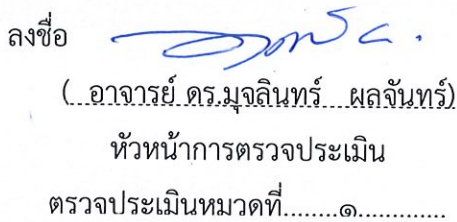 ลงชื่อ
( อาจารย์ ดร.มุจลินทร์ ผลจันทร์)
หัวหน้าการตรวจประเมิน
ตรวจประเมินหมวดที่........๑.............